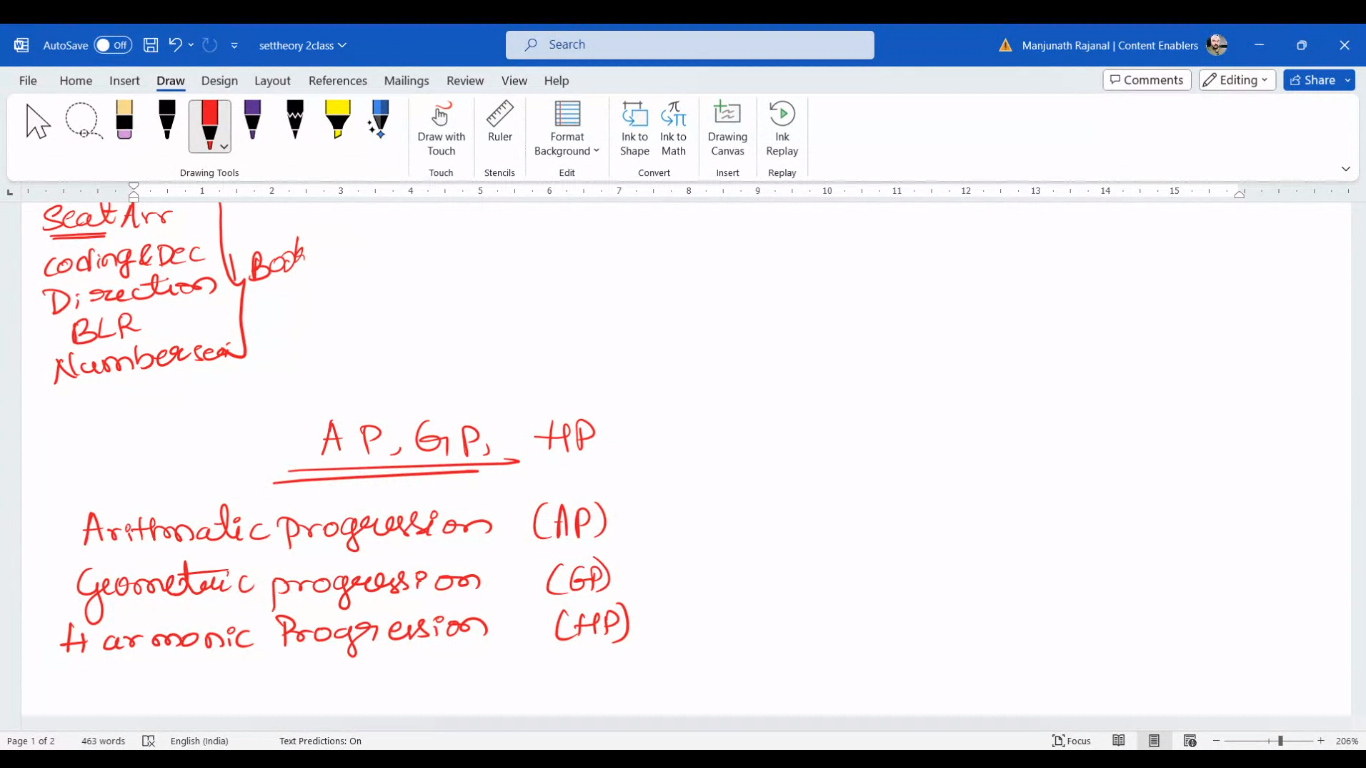 AutoSave Off settheory 2class Search Manjunath Rajanal | Content Enablers
File Home Insert Draw Design Layout References Mailings Review View Help Comments Editing Share
Draw with Touch Ruler Format Background Ink to Shape Ink to Math Drawing Canvas Ink Replay
Drawing Tools Touch Stencils Edit Convert Insert Replay
1 2 3 4 5 6 7 8 9 10 11 12 13 14 15
Seat Arr
coding & Dec
Direction
Book
BLR
Number seri
AP, GP, HP
Arithmatic progression (AP)
Geometric progression (GP)
Harmonic Progression (HP)
Page 1 of 2 463 words English (India) Text Predictions: On Focus 206%